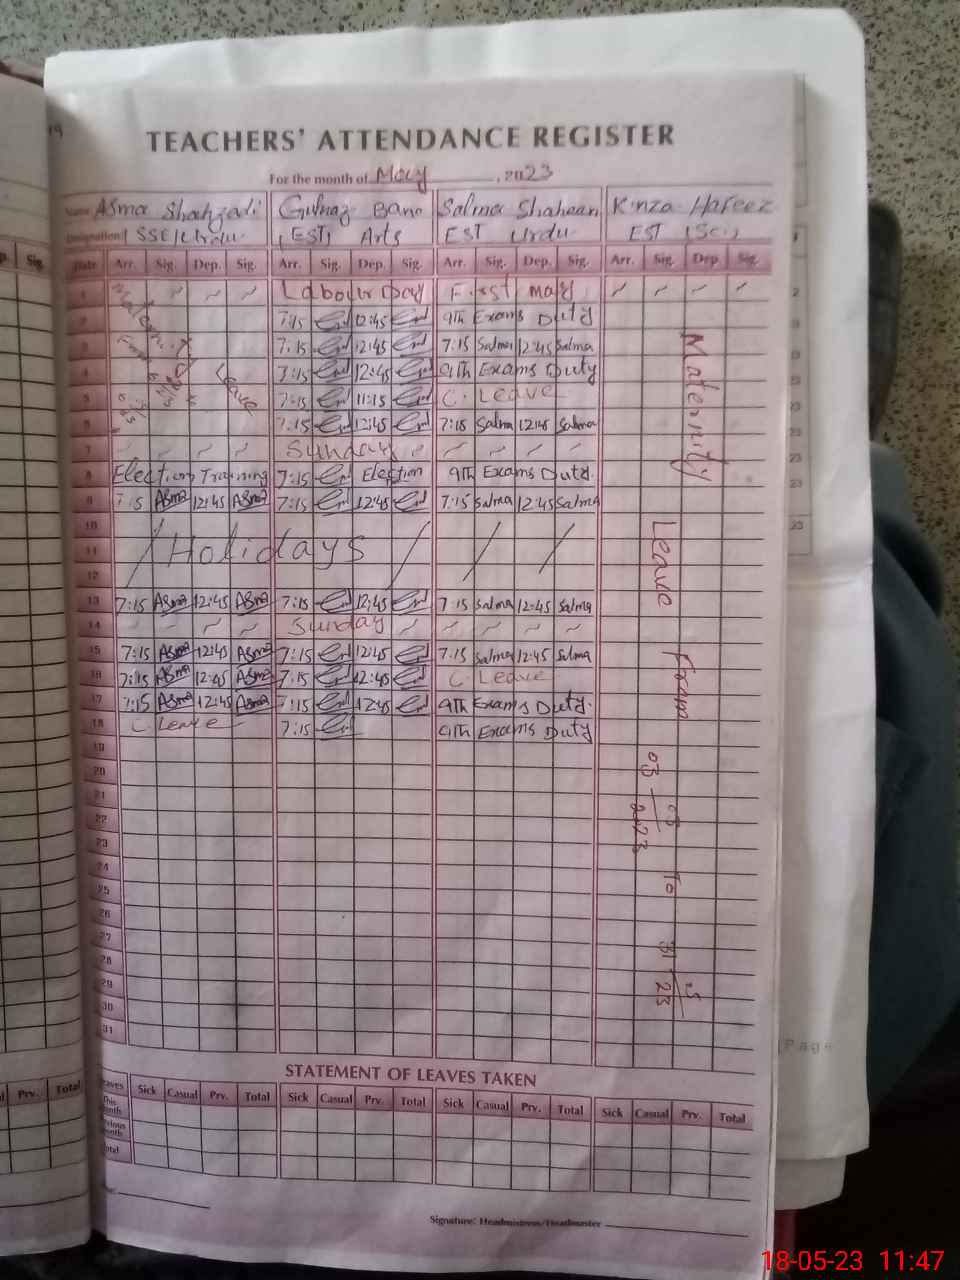 19
TEACHERS' ATTENDANCE REGISTER
For the month of May, 2023
Name Asma Shahzadi Gulnaz Bano Salma Shaheen Kinza Hafeez
Designation SSE/Urdu (EST) Arts EST Urdu EST (Sci)
p. Sig. Date Arr. Sig. Dep. Sig. Arr. Sig. Dep. Sig. Arr. Sig. Dep. Sig. Arr. Sig. Dep. Sig.
1 Labour Day First May ~ ~ ~ ~
Maternity Leave From
2 7:15 12:45 9th Exams Duty
3 7:15 12:45 7:15 Salma 12:45 Salma
4 7:15 12:45 9th Exams Duty
5 7:15 11:15 C. Leave
6 7:15 12:45 7:15 Salma 12:45 Salma
7 Sunday ~ ~ ~ ~
8 Election Training 7:15 Election 9th Exams Duty.
9 7:15 Asma 12:45 Asma 7:15 12:45 7:15 Salma 12:45 Salma
10
11 / Holidays / / /
12
13 7:15 Asma 12:45 Asma 7:15 12:45 7:15 Salma 12:45 Salma
14 ~ ~ ~ ~ Sunday ~ ~ ~ ~
15 7:15 Asma 12:45 Asma 7:15 12:45 7:15 Salma 12:45 Salma
16 7:15 Asma 12:45 Asma 7:15 12:45 C. Leave
17 7:15 Asma 12:45 Asma 7:15 12:45 9th Exams Duty.
18 C. Leave 7:15 9th Exams Duty
19
20
21
22
23
24
25
26
27
28
29
30
31
Maternity
Leave From
03 05 2023 To 31 05 23
Page
STATEMENT OF LEAVES TAKEN
Prv. Total Leaves Sick Casual Prv. Total Sick Casual Prv. Total Sick Casual Prv. Total Sick Casual Prv. Total
This Month
Previous Month
Total
Signature: Headmistress/Headmaster
18-05-23 11:47